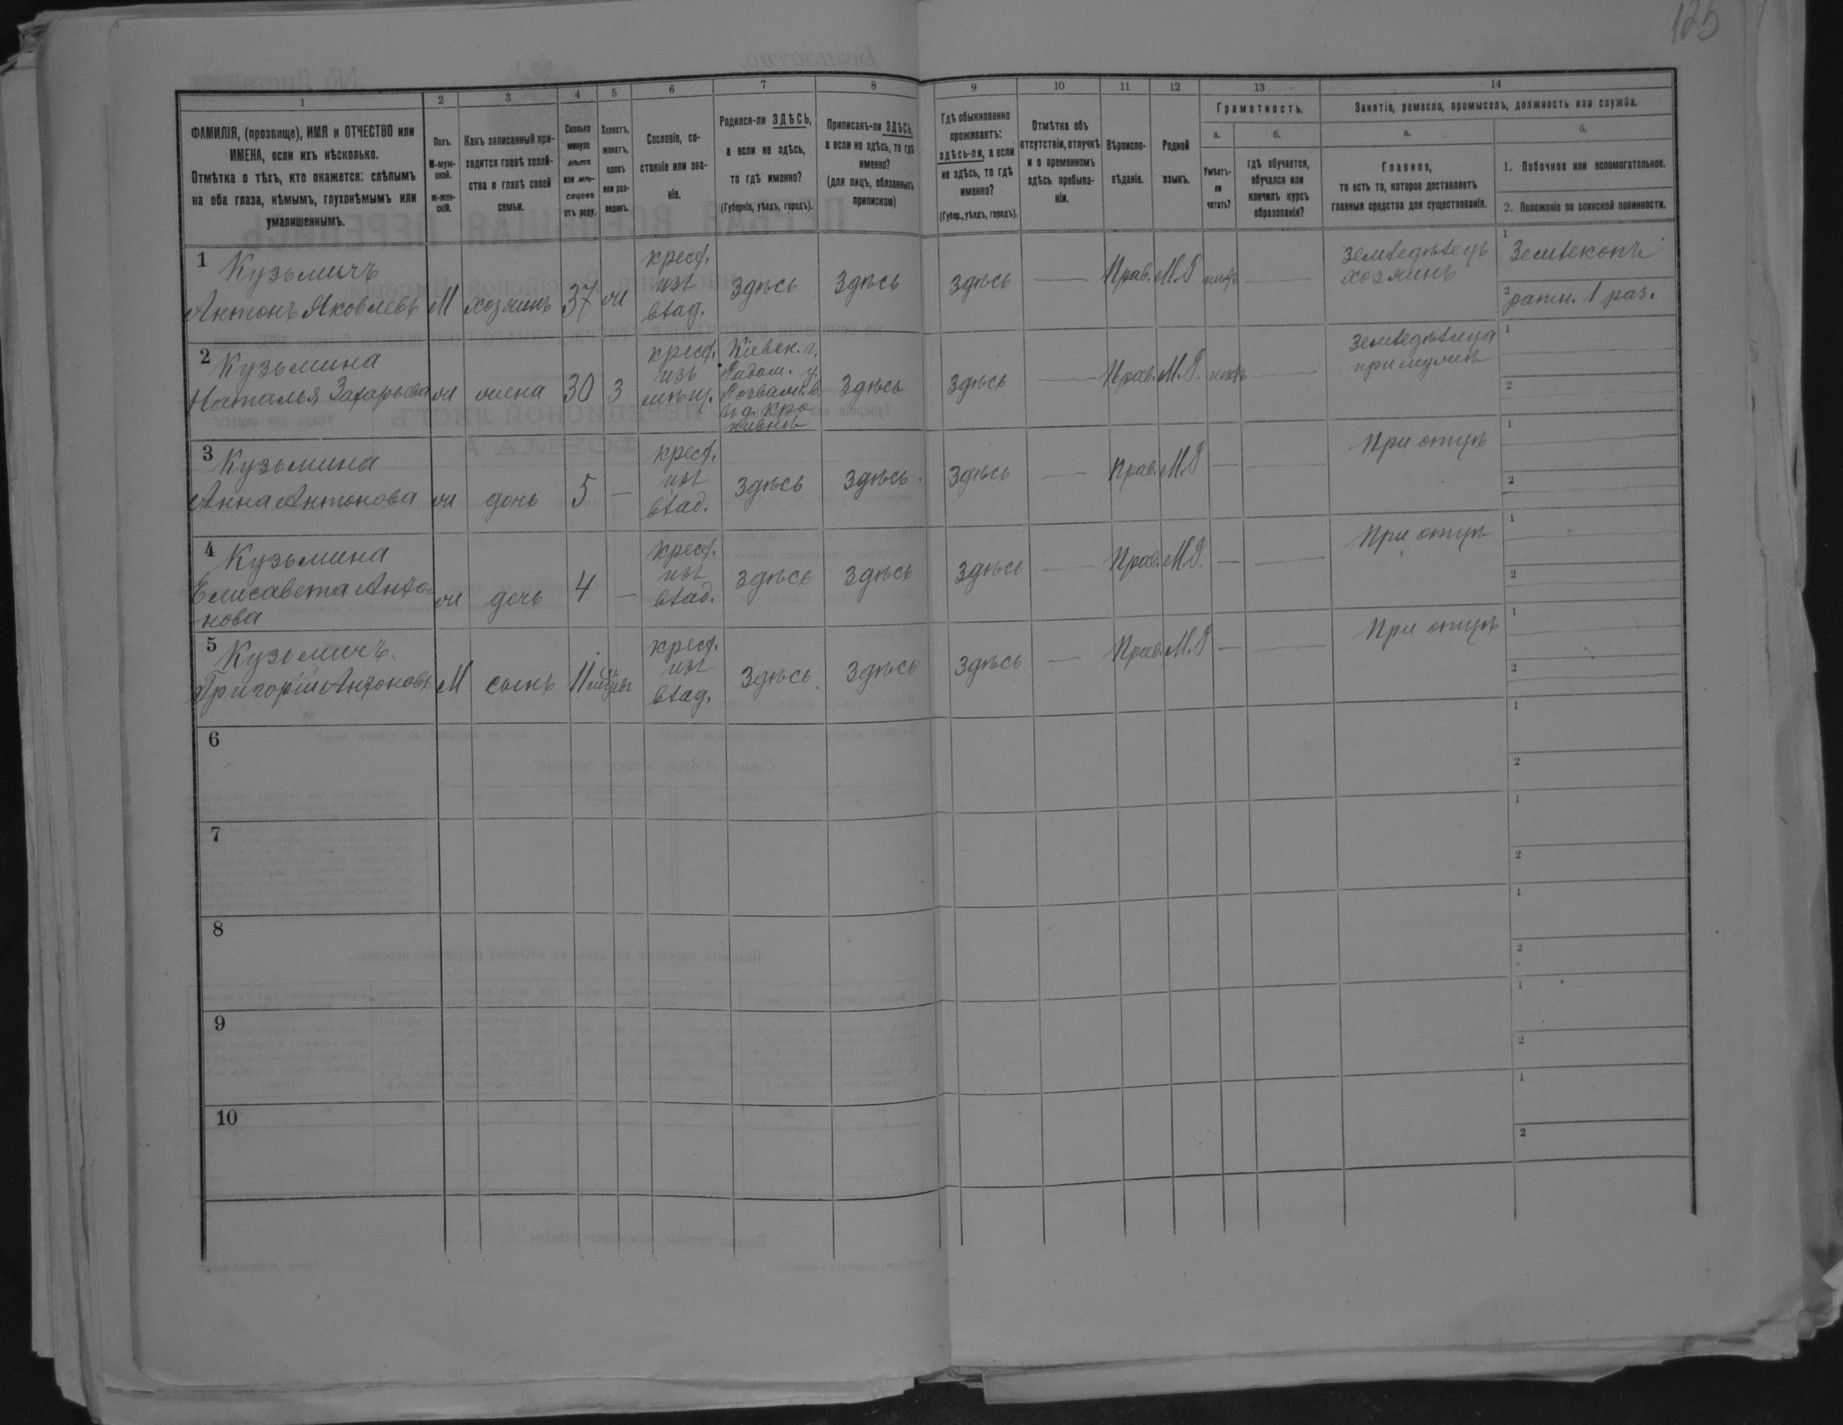 125
1
2
3
4
5
6
7
8
9
10
11
12
13
14
ФАМИЛІЯ, (прозвище), ИМЯ и ОТЧЕСТВО или
ИМЕНА, если ихъ нѣсколько.
Отмѣтка о тѣхъ, кто окажется: слѣпымъ
на оба глаза, нѣмымъ, глухонѣмымъ или
умалишеннымъ.
Полъ.
М-муж-
ской.
Ж-жен-
скій.
Какъ записанный при-
ходится главѣ хозяй-
ства и главѣ своей
семьи.
Сколько
минуло
лѣтъ
или мѣ-
сяцевъ
отъ роду.
Холостъ,
женатъ,
вдовъ
или раз-
веденъ.
Сословіе, со-
стояніе или зва-
ніе.
Родился-ли ЗДѢСЬ,
а если не здѣсь,
то гдѣ именно?
(Губернія, уѣздъ, городъ).
Приписанъ-ли ЗДѢСЬ,
а если не здѣсь, то гдѣ
именно?
(для лицъ, обязанныхъ
припискою)
Гдѣ обыкновенно
проживаетъ:
здѣсь-ли, а если
не здѣсь, то гдѣ
именно?
(Губер., уѣздъ, городъ).
Отмѣтка объ
отсутствіи, отлучкѣ
и о временномъ
здѣсь пребыва-
ніи.
Вѣроиспо-
вѣданіе.
Родной
языкъ.
Грамотность.
а.
б.
Умѣетъ-
ли
читать?
гдѣ обучается,
обучался или
кончилъ курсъ
образованія?
Занятіе, ремесло, промыселъ, должность или служба.
а.
б.
Главное,
то есть то, которое доставляетъ
главныя средства для существованія.
1. Побочное или вспомогательное.
2. Положеніе по воинской повинности.
1
Кузьмичъ
Антонъ Яковлевъ
М
хозяинъ
37
ж
крест.
изъ
влад.
Здѣсь
Здѣсь
Здѣсь
—
Прав.
М.Р
—
Земледѣлецъ
хозяинъ
1
Землекопъ
2
ратн. 1 раз.
2
Кузьмина
Наталья Захарьева
ж
жена
30
З
крест.
изъ
Кіевск. г.
Радом. у.
Здѣсь
Здѣсь
—
Прав.
М.Р.
—
Земледѣлица
при мужѣ
1
2
3
Кузьмина
Анна Антонова
ж
дочь
5
—
крест.
изъ
влад.
Здѣсь
Здѣсь
Здѣсь
—
Прав.
М.Р
—
—
При отцѣ
1
2
4
Кузьмина
Елисавета Анто-
нова
ж
дочь
4
—
крест.
изъ
влад.
Здѣсь
Здѣсь
Здѣсь
—
Прав.
М.Р.
—
—
При отцѣ
1
2
5
Кузьмичъ
Григорій Антоновъ
М
сынъ
11 мѣсяцевъ
крест.
изъ
влад.
Здѣсь
Здѣсь
Здѣсь
—
Прав.
М.Р
—
—
При отцѣ
1
2
6
1
2
7
1
2
8
1
2
9
1
2
10
1
2